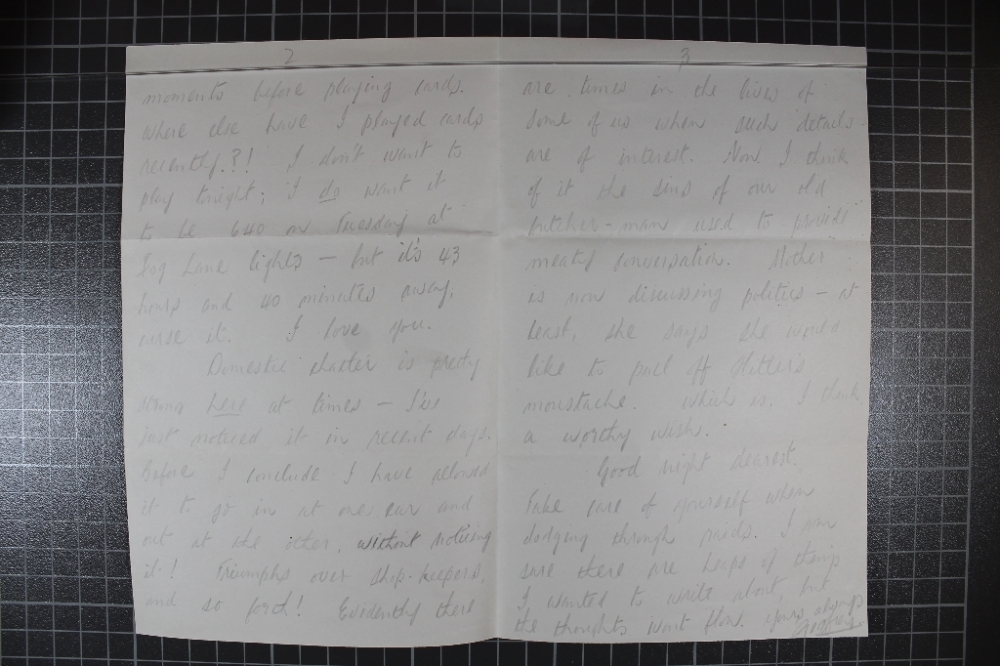 2
moments before playing cards.
Where else have I played cards
recently?! I don't want to
play tonight; I do want it
to be 6.40 on Tuesday at
Fog Lane lights – but it's 43
hours and 40 minutes away,
curse it. I love you.
Domestic chatter is pretty
strong here at times – I've
just noticed it in recent days.
Before I conclude I have allowed
it to go in at one ear and
out at the other, without noticing
it! Triumphs over shop-keepers,
and so forth! Evidently there
3
are times in the lives of
some of us when such details
are of interest. Now I think
of it the sins of our old
butcher-man used to provide
meaty conversation. Mother
is now discussing politics – at
least, she says she would
like to pull off Hitler's
moustache. Which is, I think
a worthy wish.
Good night dearest.
Take care of yourself when
dodging through raids. I am
sure there are heaps of things
I wanted to write about, but
the thoughts wont flow. Yours always